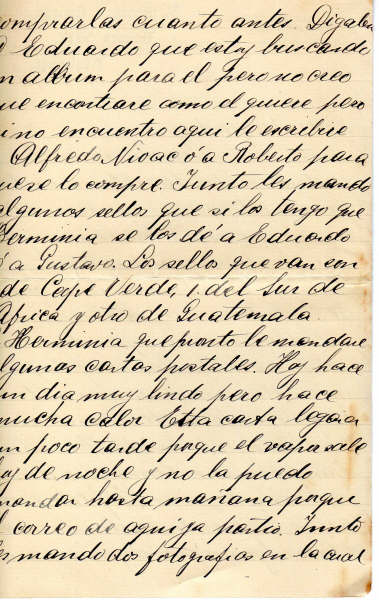 comprarlas cuanto antes. Digale
Eduardo que estoy buscando
n album para el pero no creo
ue encontrare como el quiere pero
i no encuentro aqui le escribire
Alfredo Nioac ó a Roberto para
ue se lo compre. Junto les mando
algunos sellos que si los tengo que
Herminia se los dé a Eduardo
ó a Gustavo. Los sellos que van son
de Cape Verde, 1 del Sur de
Africa y otro de Guatemala.
Herminia que pronto le mandare
lgunas cartas postales. Hoy hace
un dia muy lindo pero hace
mucha calor Esta carta llegara
un poco tarde porque el vapor sale
oy de noche y no la puedo
mandar hasta mañana porque
l correo de aqui ya partio. Junto
les mando dos fotografias en la cual